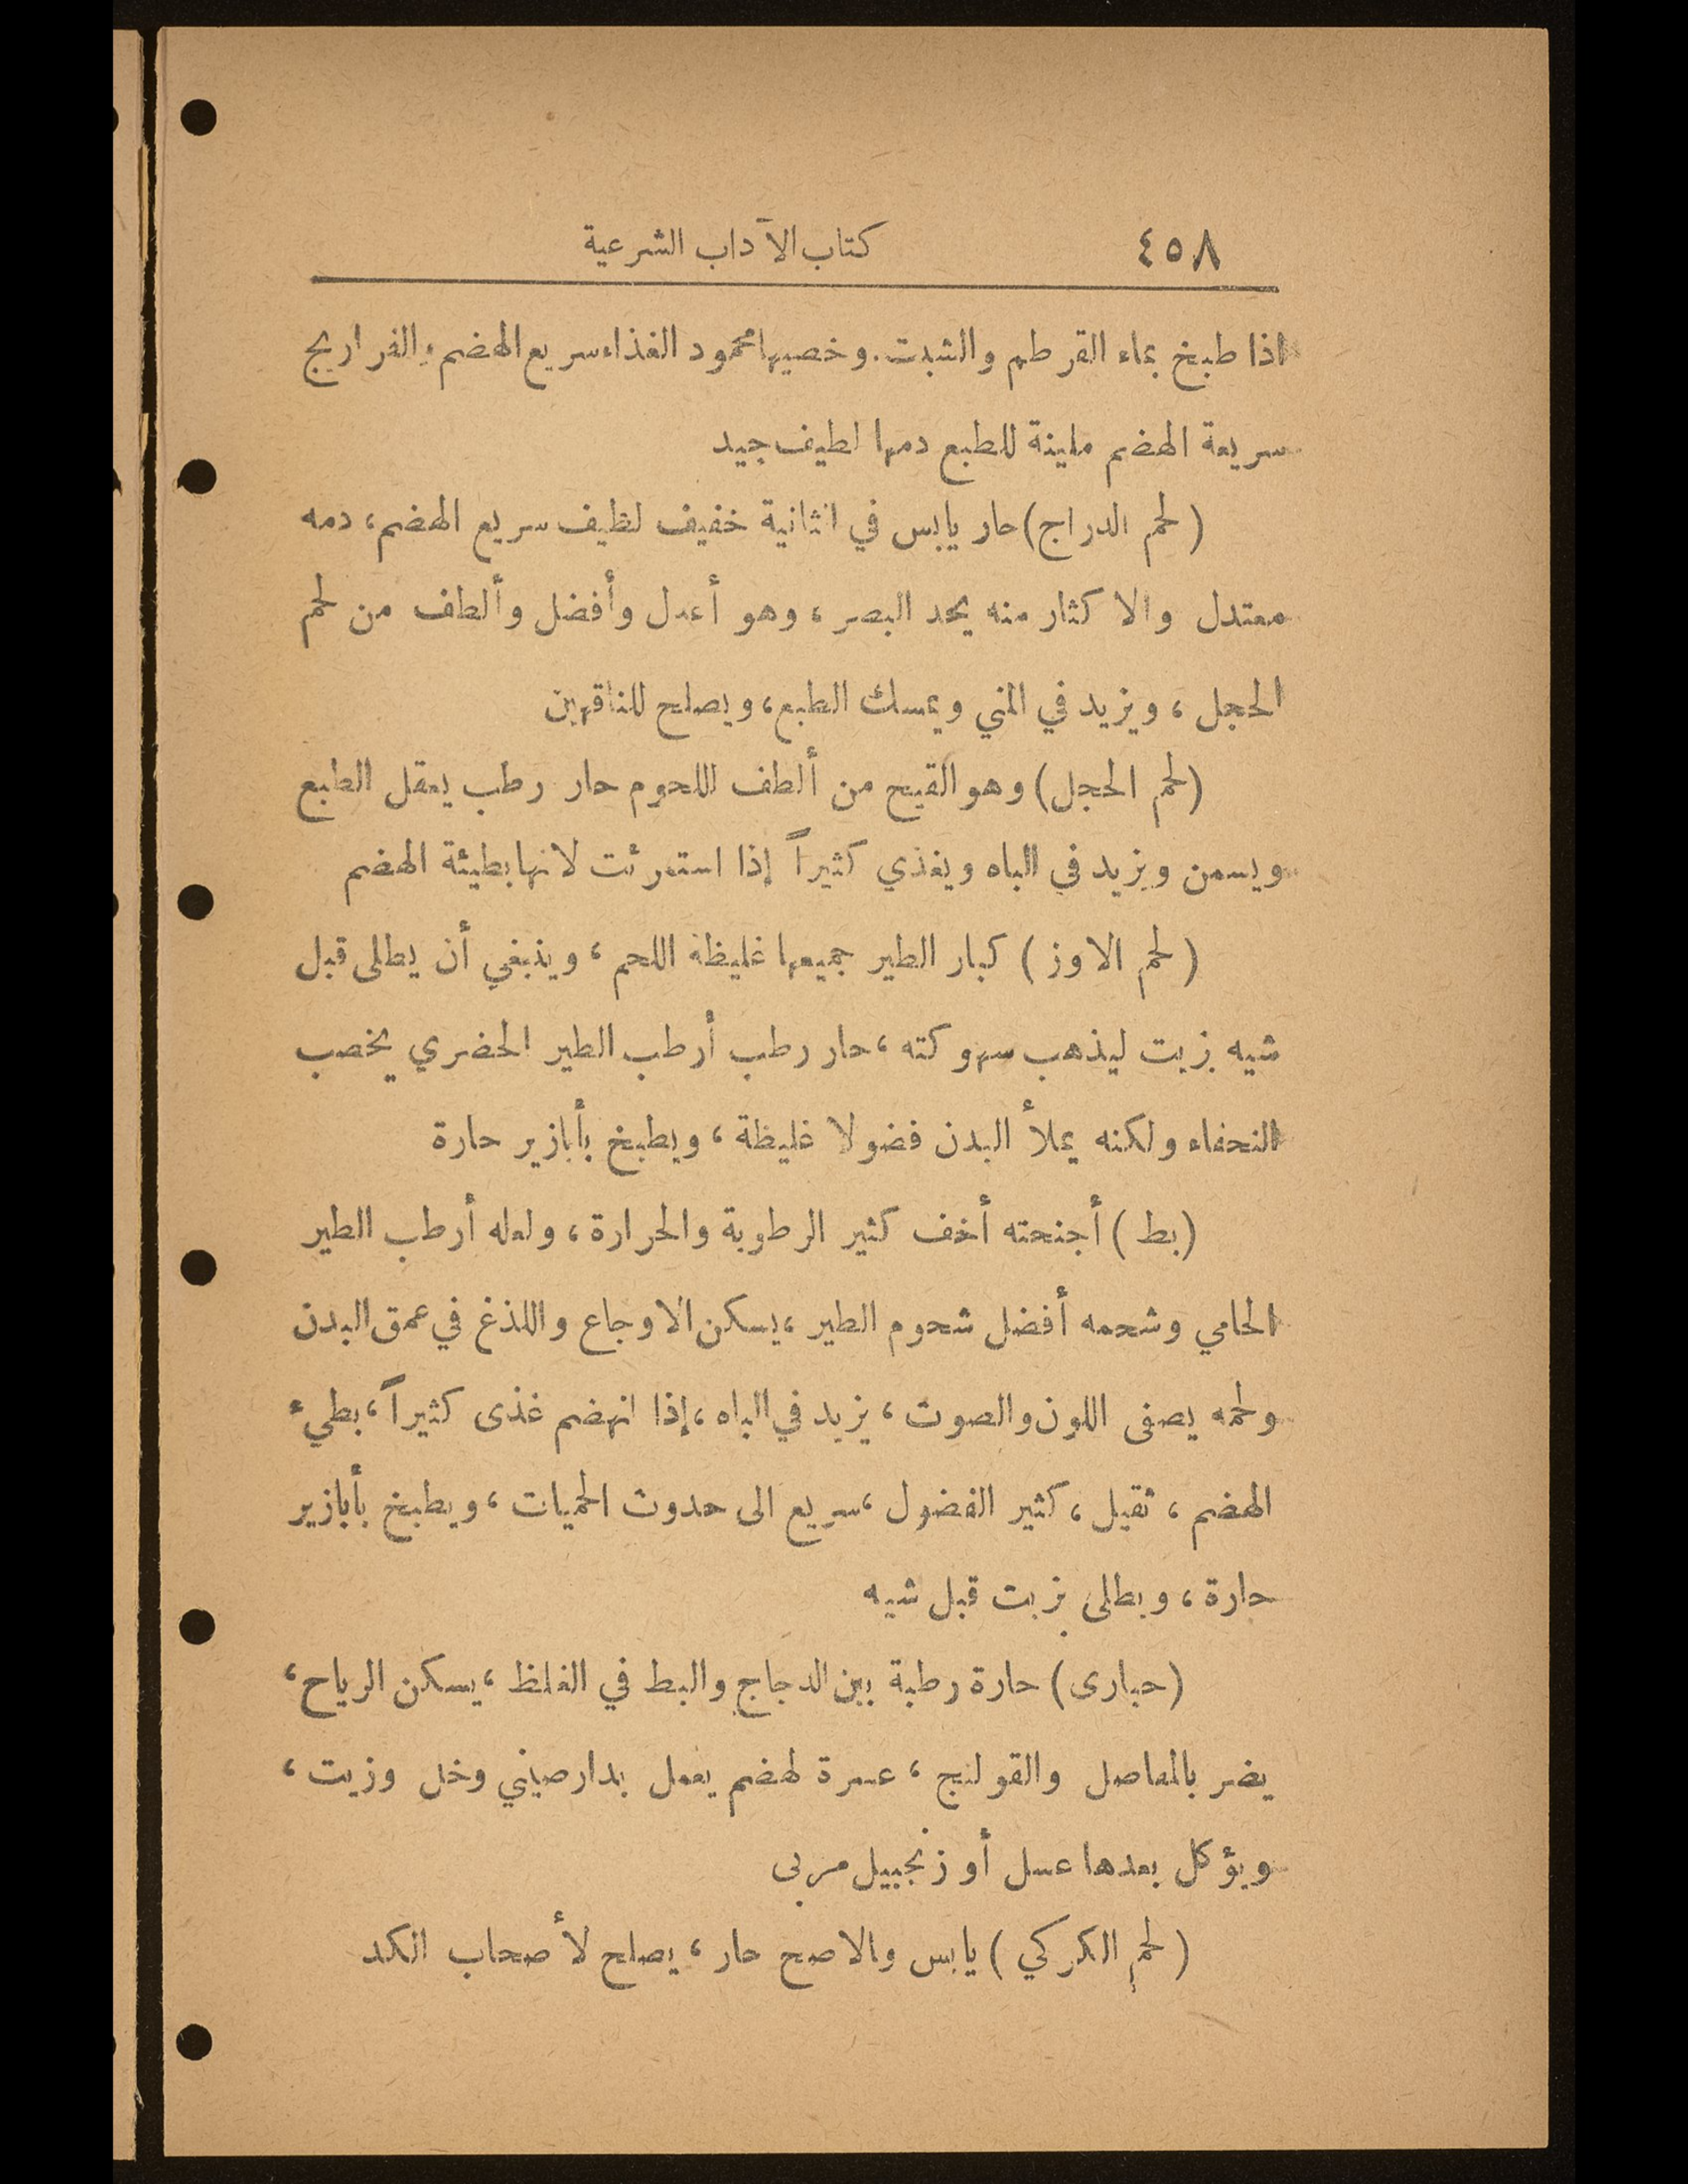 ٤٥٨ كتاب الآداب الشرعية
اذا طبخ بماء القرطم والشبت. وخصيها محمود الغذاء سريع الهضم، والفراريج
سريعة الهضم ملينة للطبع دمها لطيف جيد
(لحم الدراج) حار يابس في الثانية خفيف لطيف سريع الهضم، دمه
معتدل والاكثار منه يحد البصر، وهو أعدل وأفضل وألطف من لحم
الحجل، ويزيد في المني ويمسك الطبع، ويصلح للناقهين
(لحم الحجل) وهو القبج من ألطف اللحوم حار رطب يعقل الطبع
ويسمن ويزيد في الباه ويغذي كثيراً إذا استمرئت لانها بطيئة الهضم
(لحم الاوز) كبار الطير جميعها غليظة اللحم، وينبغي أن يطلى قبل
شيه بزيت ليذهب سهوكته، حار رطب أرطب الطير الحضري يخصب
النحفاء ولكنه يملأ البدن فضولا غليظة، ويطبخ بأبازير حارة
(بط) أجنحته أخف كثير الرطوبة والحرارة، ولعله أرطب الطير
الحامي وشحمه أفضل شحوم الطير، يسكن الاوجاع واللذغ في عمق البدن
ولحمه يصفى اللون والصوت، يزيد في الباه، إذا انهضم غذى كثيراً، بطيء
الهضم، ثقيل، كثير الفضول، سريع الى حدوث الحميات، ويطبخ بأبازير
حارة، ويطلى بزيت قبل شيه
(حبارى) حارة رطبة بين الدجاج والبط في الغلظ، يسكن الرياح،
يضر بالمفاصل والقولنج، عسرة لهضم يعمل بدارصيني وخل وزيت،
ويؤكل بعدها عسل أو زنجبيل مربى
(لحم الكركي) يابس والاصح حار، يصلح لأصحاب الكد